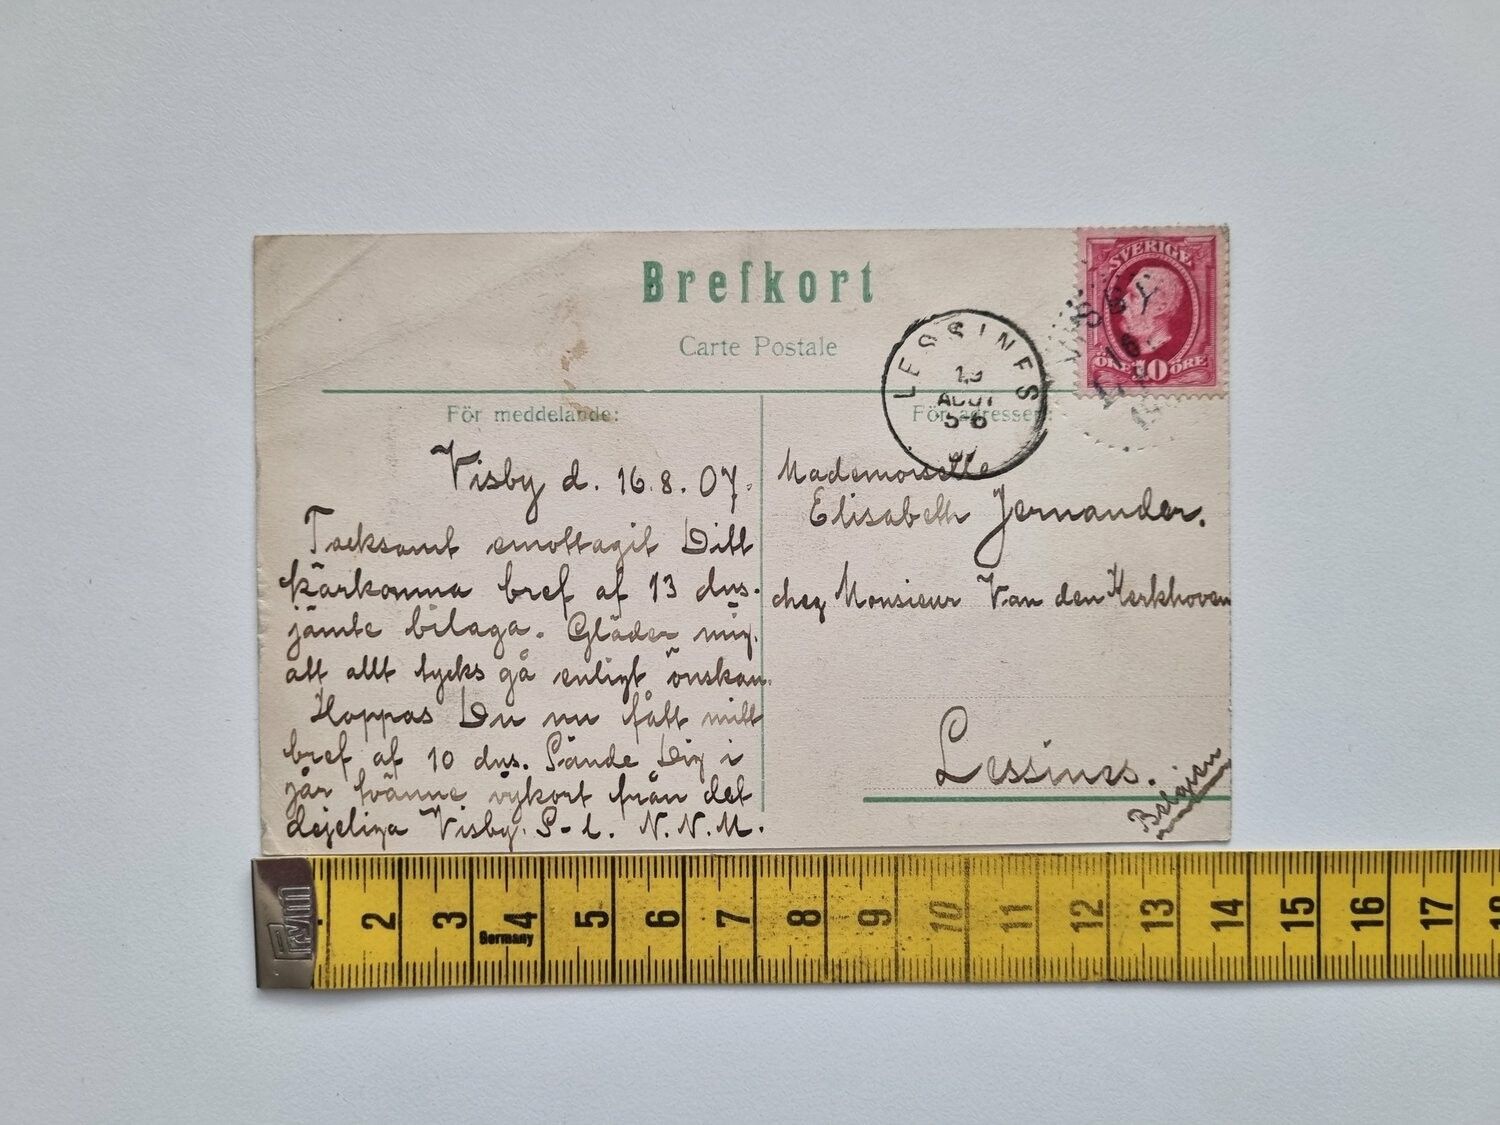 Brefkort
Carte Postale
För meddelande:
För adressen:
SVERIGE
ÖRE 10 ÖRE
LESSINES
AOUT
5-6
VISBY
16
Visby d. 16.8.07.
Tacksamt emottagit Ditt
kärkomna bref af 13 dns.
jämte bilaga. Gläder mig.
att allt tycks gå enligt önskan.
Hoppas Du nu fått mitt
bref af 10 dns. Sände Dig i
går tvänne vykort från det
dejeliga Visby. S-l. N.N.M.
Mademoiselle
Elisabeth Jernander.
chez Monsieur Van den Kerkhoven
Lessines.
Belgien
Germany
2 3 4 5 6 7 8 9 10 11 12 13 14 15 16 17 18